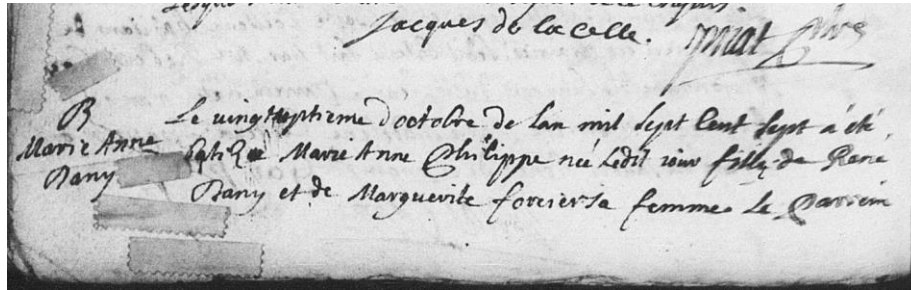 Jacques de lacelle. priat Curé
B
Marie Anne
Dany
Le vingtseptieme doctobre de lan mil sept Cent sept à eté
Marie Anne Philippe née Ledit iour fille de René
Dany et de Marguerite forciersa femme Le Parrein